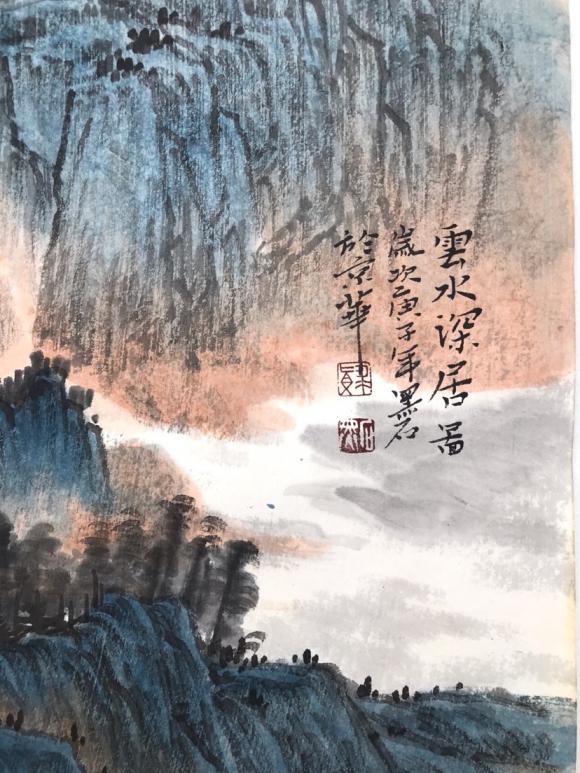 雲水深居圖
歲次庚子年墨石
於京華